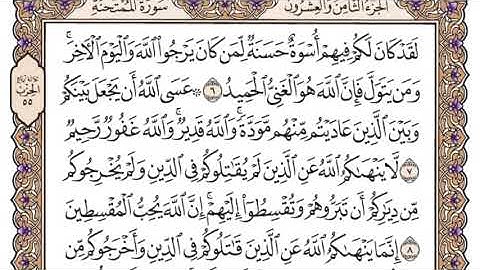 الجزء الثامن والعشرون
سورة الممتحنة
لَقَدْ كَانَ لَكُمْ فِيهِمْ أُسْوَةٌ حَسَنَةٌ لِّمَن كَانَ يَرْجُوا۟ ٱللَّهَ وَٱلْيَوْمَ ٱلْءَاخِرَ ۚ
وَمَن يَتَوَلَّ فَإِنَّ ٱللَّهَ هُوَ ٱلْغَنِىُّ ٱلْحَمِيدُ ٦ ۞ عَسَى ٱللَّهُ أَن يَجْعَلَ بَيْنَكُمْ
وَبَيْنَ ٱلَّذِينَ عَادَيْتُم مِّنْهُم مَّوَدَّةً ۚ وَٱللَّهُ قَدِيرٌ ۚ وَٱللَّهُ غَفُورٌ رَّحِيمٌ
٧ لَّا يَنْهَىٰكُمُ ٱللَّهُ عَنِ ٱلَّذِينَ لَمْ يُقَـٰتِلُوكُمْ فِى ٱلدِّينِ وَلَمْ يُخْرِجُوكُم
مِّن دِيَـٰرِكُمْ أَن تَبَرُّوهُمْ وَتُقْسِطُوٓا۟ إِلَيْهِمْ ۚ إِنَّ ٱللَّهَ يُحِبُّ ٱلْمُقْسِطِينَ
٨ إِنَّمَا يَنْهَىٰكُمُ ٱللَّهُ عَنِ ٱلَّذِينَ قَـٰتَلُوكُمْ فِى ٱلدِّينِ وَأَخْرَجُوكُم مِّن
ثلاثة أرباع
الحزب
٥٥